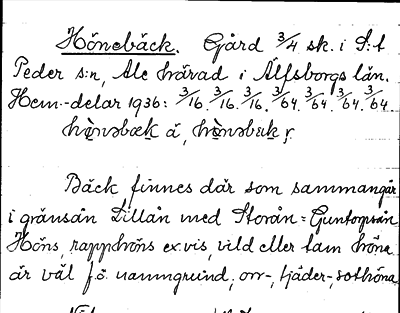 Hönebäck. Gård 3/4 sk. i S:t
Peder s:n, Ale härad i Älfsborgs län.
Hem.-delar 1936: 3/16. 3/16. 3/16. 3/64. 3/64. 3/64. 3/64.
Bäck finnes där som sammangår
i gränsån Lillån med Storån = Guntorpsån
Höns, rapphöns ex.vis, vild eller tam höna
är väl f.ö. namngrund, orr-, tjäder-, sothöna